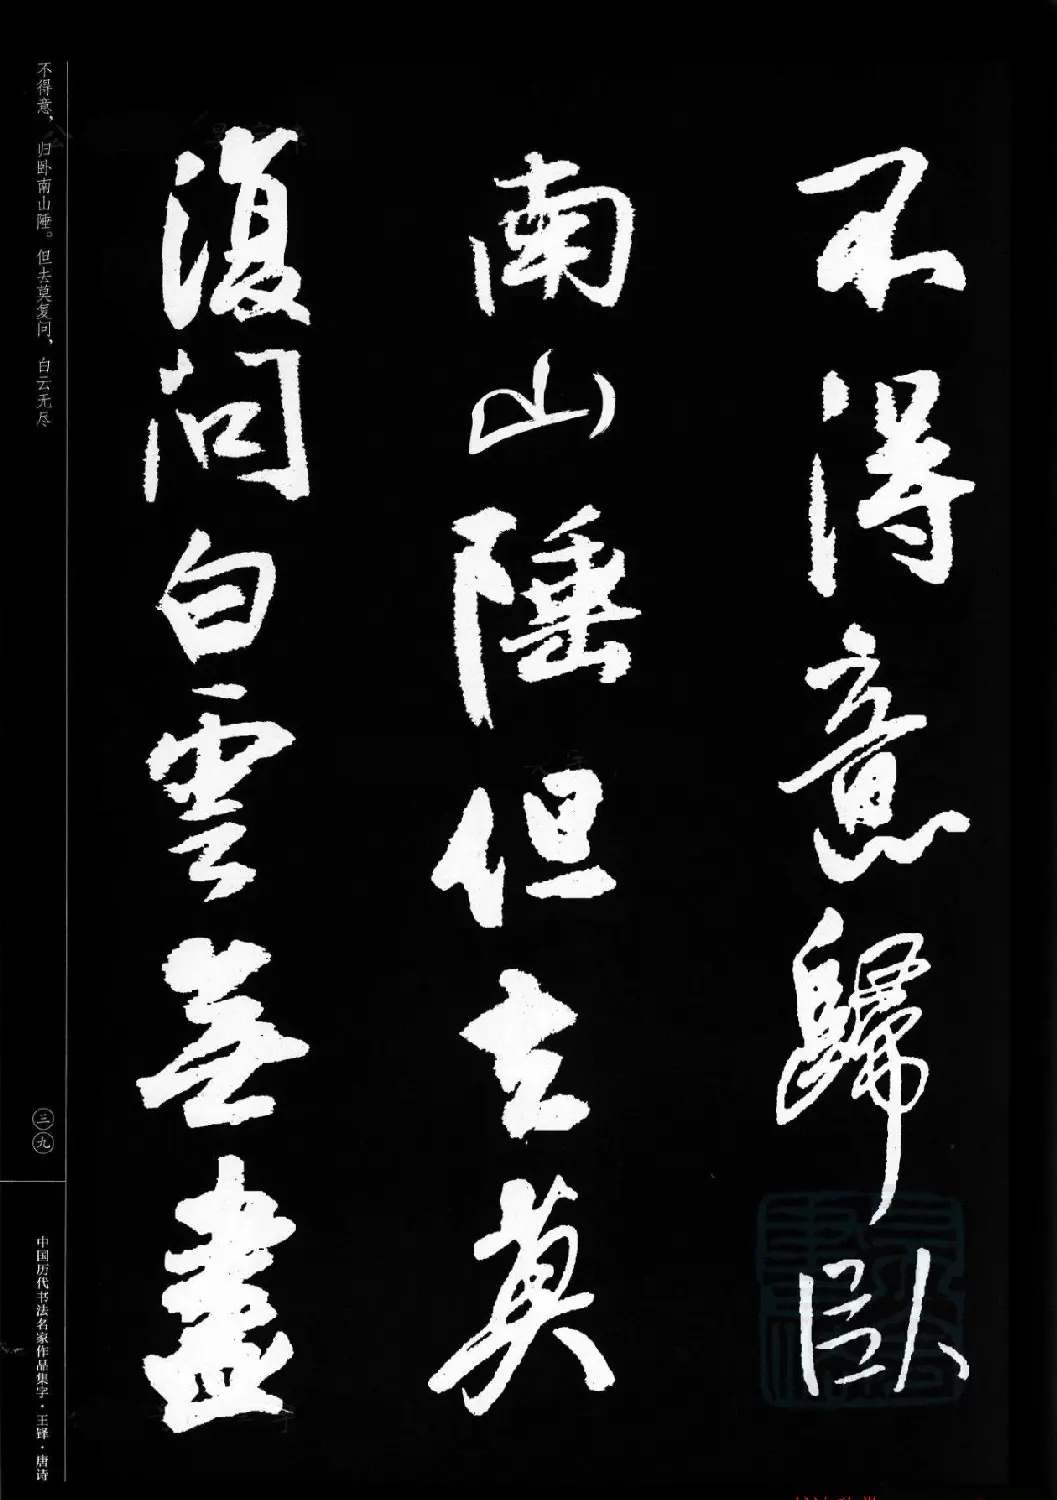 不得意歸臥
南山陲但去莫
復問白雲無盡
不得意，归卧南山陲。但去莫复问，白云无尽
三九
中国历代书法名家作品集字·王铎·唐诗